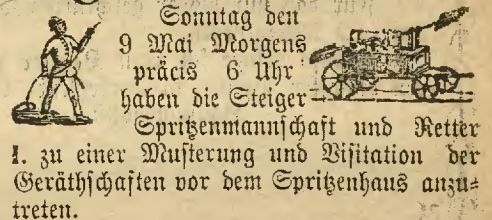 Sonntag den
9 Mai Morgens
präcis 6 Uhr
haben die Steiger
Spritzenmannschaft und Retter
I. zu einer Musterung und Visitation der
Geräthschaften vor dem Spritzenhaus anzu-
treten.